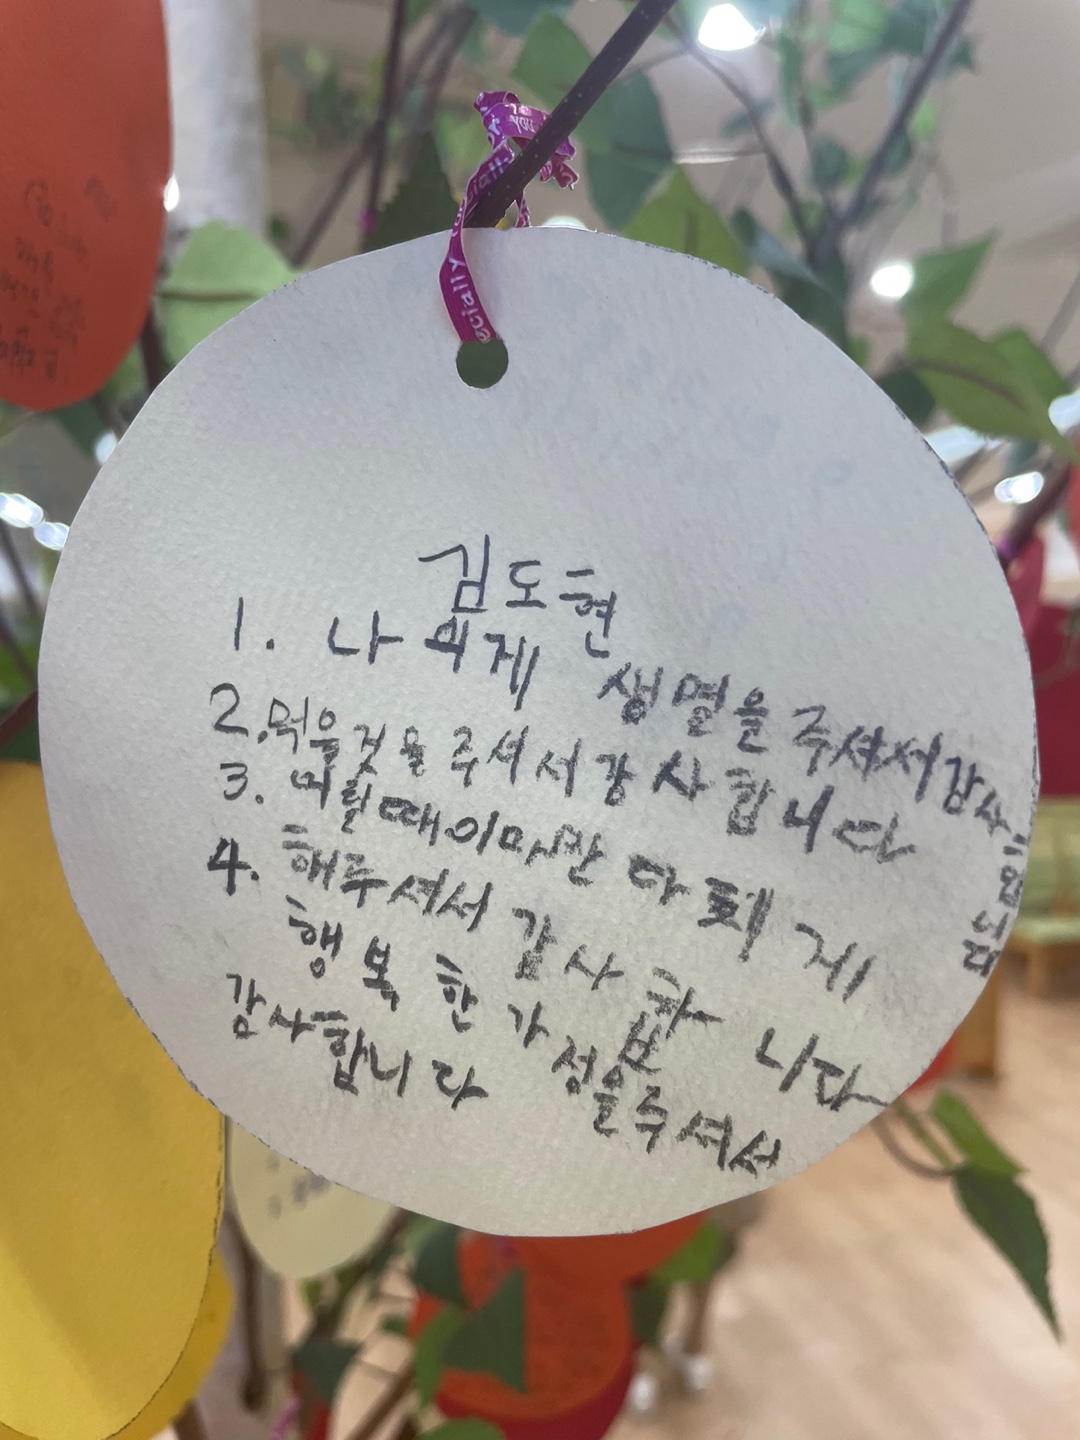 ecially
김도현
1. 나 의게 생명을 주셔서감사합니다
2.먹을것을 주셔서감사합니다
3. 어릴때 이마만 다 게
해주셔서 감사합니다
4. 행복한 가정을주셔서
감사합니다